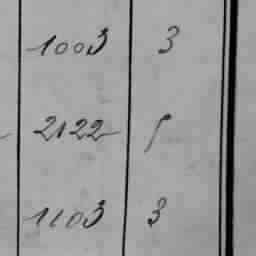 1003 3
2122
1103 3